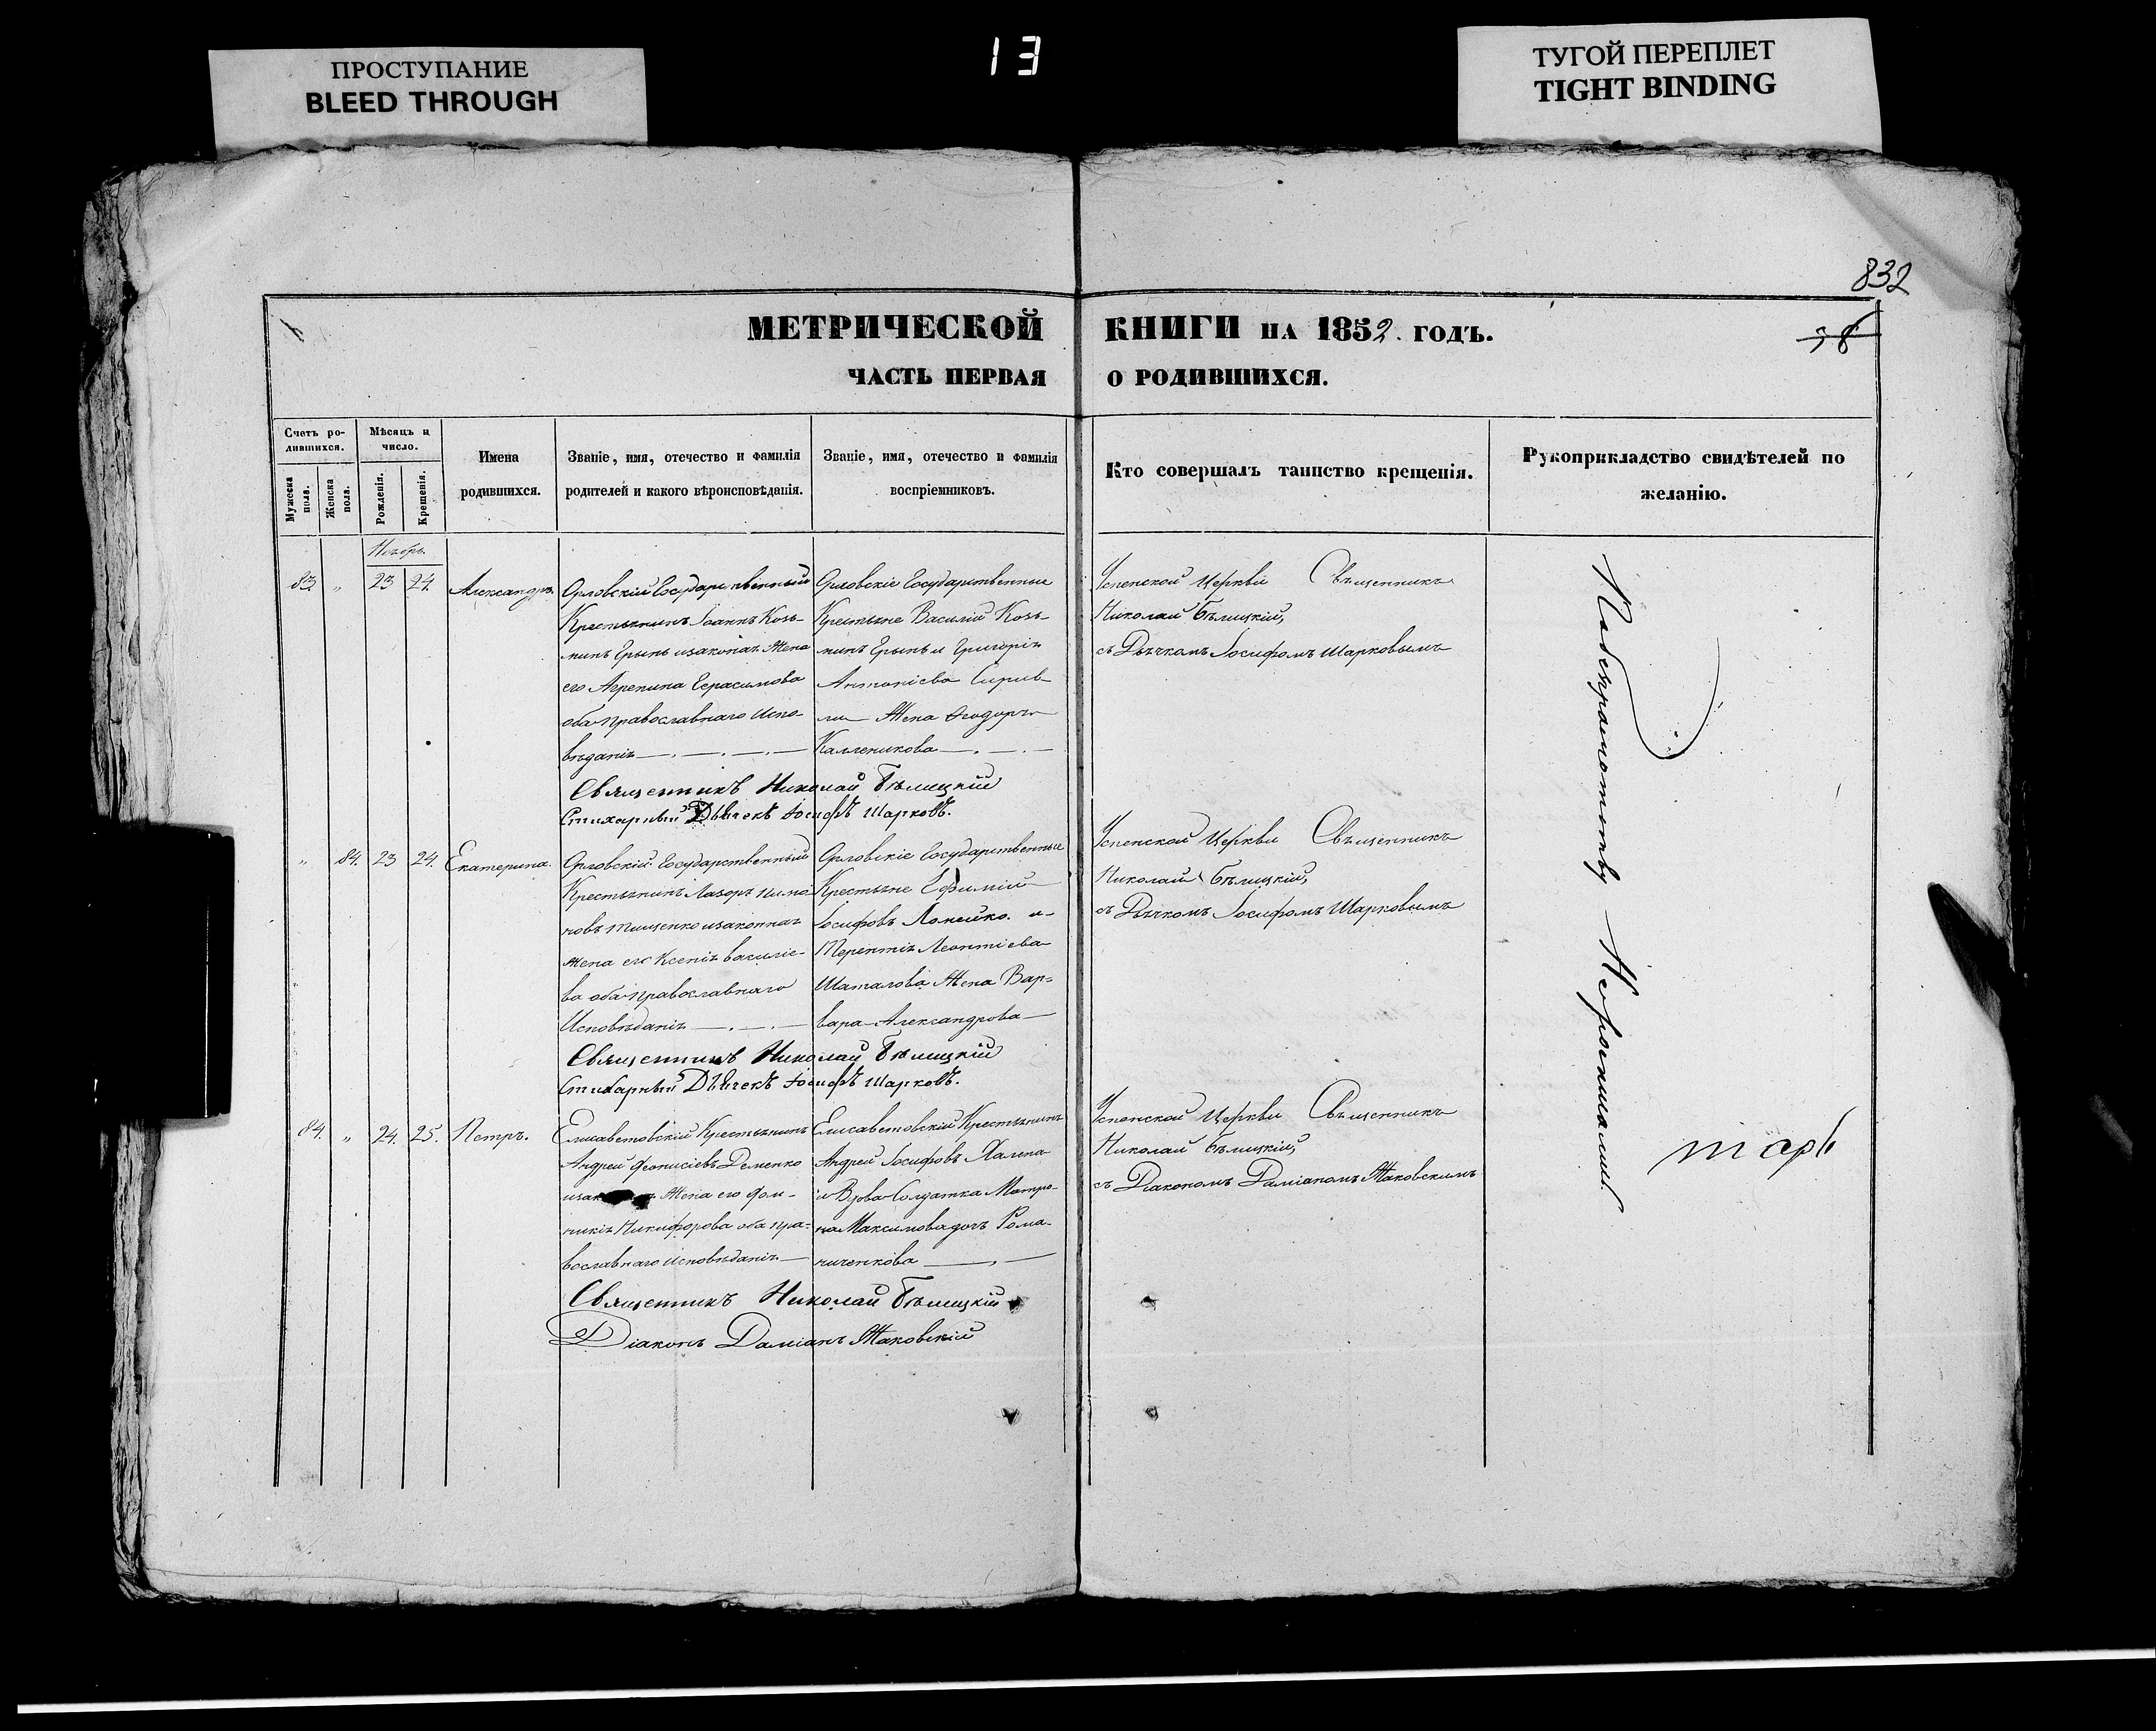 ПРОСТУПАНИЕ
BLEED THROUGH
13
ТУГОЙ ПЕРЕПЛЕТ
TIGHT BINDING
832
38
МЕТРИЧЕСКОЙ КНИГИ НА 1852. ГОДЪ.
ЧАСТЬ ПЕРВАЯ О РОДИВШИХСЯ.
Счетъ ро-
дившихся.
Мужеска
пола.
Женска
пола.
Мѣсяцъ и
число.
Рожденія.
Крещенія.
Имена
родившихся.
Званіе, имя, отечество и фамилія
родителей и какого вѣроисповѣданія.
Званіе, имя, отечество и фамилія
воспріемниковъ.
Кто совершалъ таинство крещенія.
Рукоприкладство свидѣтелей по
желанію.
Ноябрь
83 " 23 24. Александръ.
Орловскій Государственный
Крестьянинъ Іоаннъ Козь-
минъ Ерынъ изаконая Жена
его Агрепина Герасимова
оба православнаго Испо-
вѣданія
Орловскіе Государственные
Крестьяне Василій Козь-
минъ Ерынъ и Григорія
Антоніева
Жена Ѳеодора
Калленикова
Успенской Церкви Священникъ
Николай Бѣлицкій,
съ Дьячкомъ Іосифомъ Шарковымъ
Священникъ Николай Бѣлицкій
Стихарный Дьячекъ Іосифъ Шарковъ.
" 84. 23 24. Екатерина.
Орловскій Государственный
Крестьянинъ Лазорь Пима
новъ Тищенко изаконная
Жена его Ксенія Василіе-
ва оба православнаго
Исповѣданія
Орловскіе Государственные
Крестьяне Ефимій
Іосифовъ Лопейко. и
Терентія Леонтіева
Шаталова Жена Вар-
вара Александрова
Успенской Церкви Священникъ
Николай Бѣлицкій,
съ Дьячкомъ Іосифомъ Шарковымъ
Священникъ Николай Бѣлицкій
Стихарный Дьячекъ Іосифъ Шарковъ.
84. " 24. 25. Петръ.
Елисаветовскій Крестьянинъ
Андрей Діонисіевъ Деменко
Жена его Дом-
никія Никифорова оба пра-
вославнаго исповѣданія
Елисаветовскій Крестьянинъ
Андрей Іосифовъ Халепа
и Вдова Солдатка Матро-
на Максимова дочь Рома-
ниченкова
Успенской Церкви Священникъ
Николай Бѣлицкій,
съ Діакономъ Даміаномъ Жаковскимъ
Священникъ Николай Бѣлицкій
Діаконъ Даміанъ Жаковскій